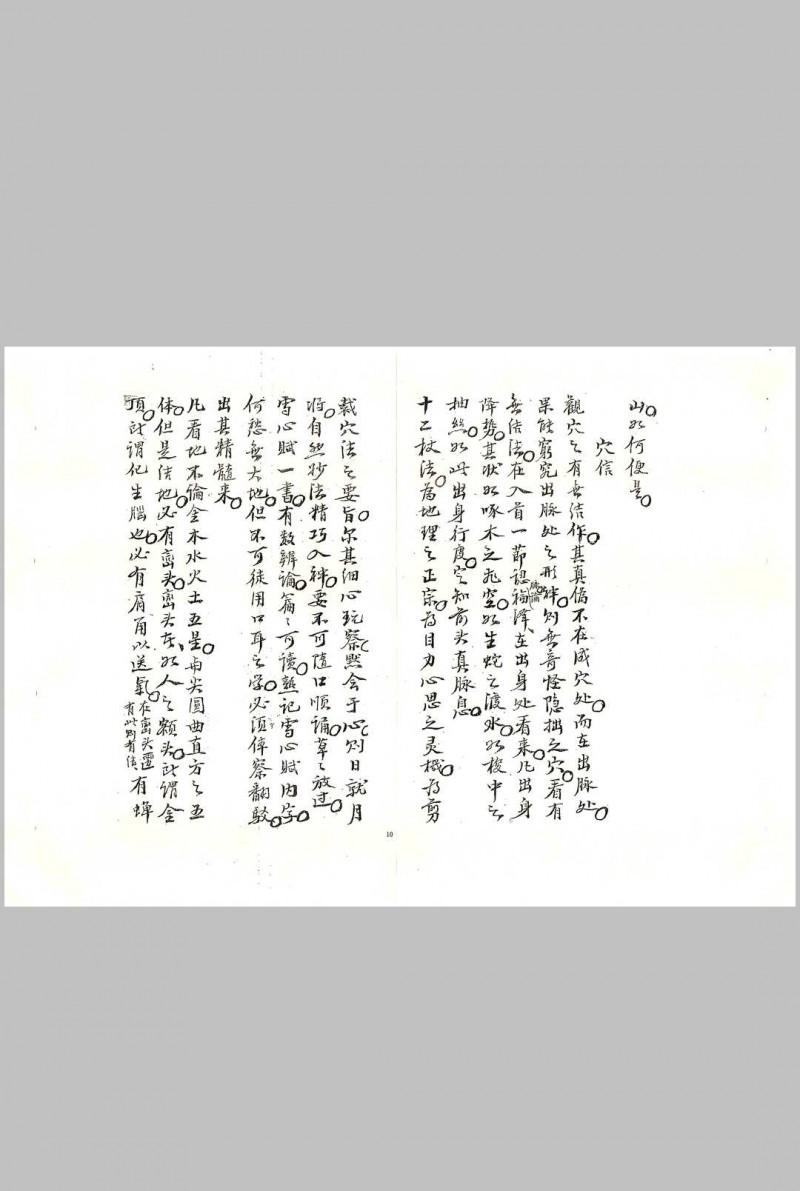 山。如何便是。
穴信
觀穴之有無結作。其真僞不在成穴处。而在出脉处。
果能窮究出脉处之形神。則無奇怪隐拙之穴。看有
無结法。在入首一節认福泽。在出身处看来。凡出身
降势。其狀如啄木之飛空。如生蛇之渡水。如梭中之
抽丝。如此出身行度。定知前头真脉息。
十二杖法。為地理之正宗。為目力心思之灵機。為剪
裁穴法之要旨。尔其细心玩察。默会于心。则日就月
将。自然妙法精巧入神。要不可随口順诵。草草放过。
雪心赋一書。有数辨論。篇篇可读。熟记雪心赋内。
何愁無大地。但不可徒用口耳之学。必須俾察翻駁。
出其精髓来。
凡看地不論金木水火土五星。与尖圆曲直方之五
体。但是结地。必有峦头。峦头者、如人之额头。此謂金
頂。此謂化生腦也。必有肩角以送氣。在峦头里有此則有结有蝉
10